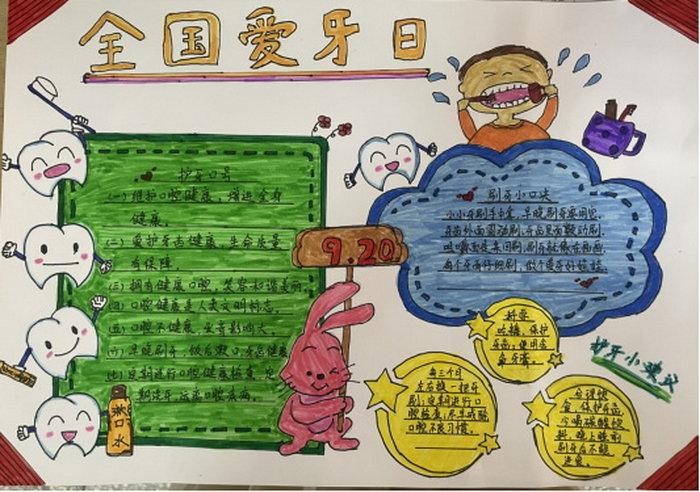 全国爱牙日
护牙口号
(一)维护口腔健康,增进全身
健康。
(二)爱护牙齿健康,生命质量
有保障。
(三)拥有健康口腔,笑容和谐美丽。
(四)口腔健康是人类文明标志。
(五)口腔不健康,坐着影响大。
(六)早晚刷牙,饭后漱口牙齿健康
(七)定期进行口腔健康检查,定
期洗牙,远离口腔疾病。
漱口水
9.20
刷牙小口诀
小小牙刷手中拿,早晚刷牙要用它,
牙齿外面画动刷,牙齿里面颤动刷,
咀嚼面是来回刷,刷牙就像在画画,
每个牙面仔细刷,做个爱牙的娃娃。
科学
吃糖,保护
牙齿;使用含
氟牙膏。
护牙小建议
每三个月
左右换一把牙
刷;定期进行口
腔检查;尽早戒除
口腔不良习惯。
合理饮
食,保护牙齿
少喝碳酸饮
料,晚上睡前
刷牙后不能
进食。